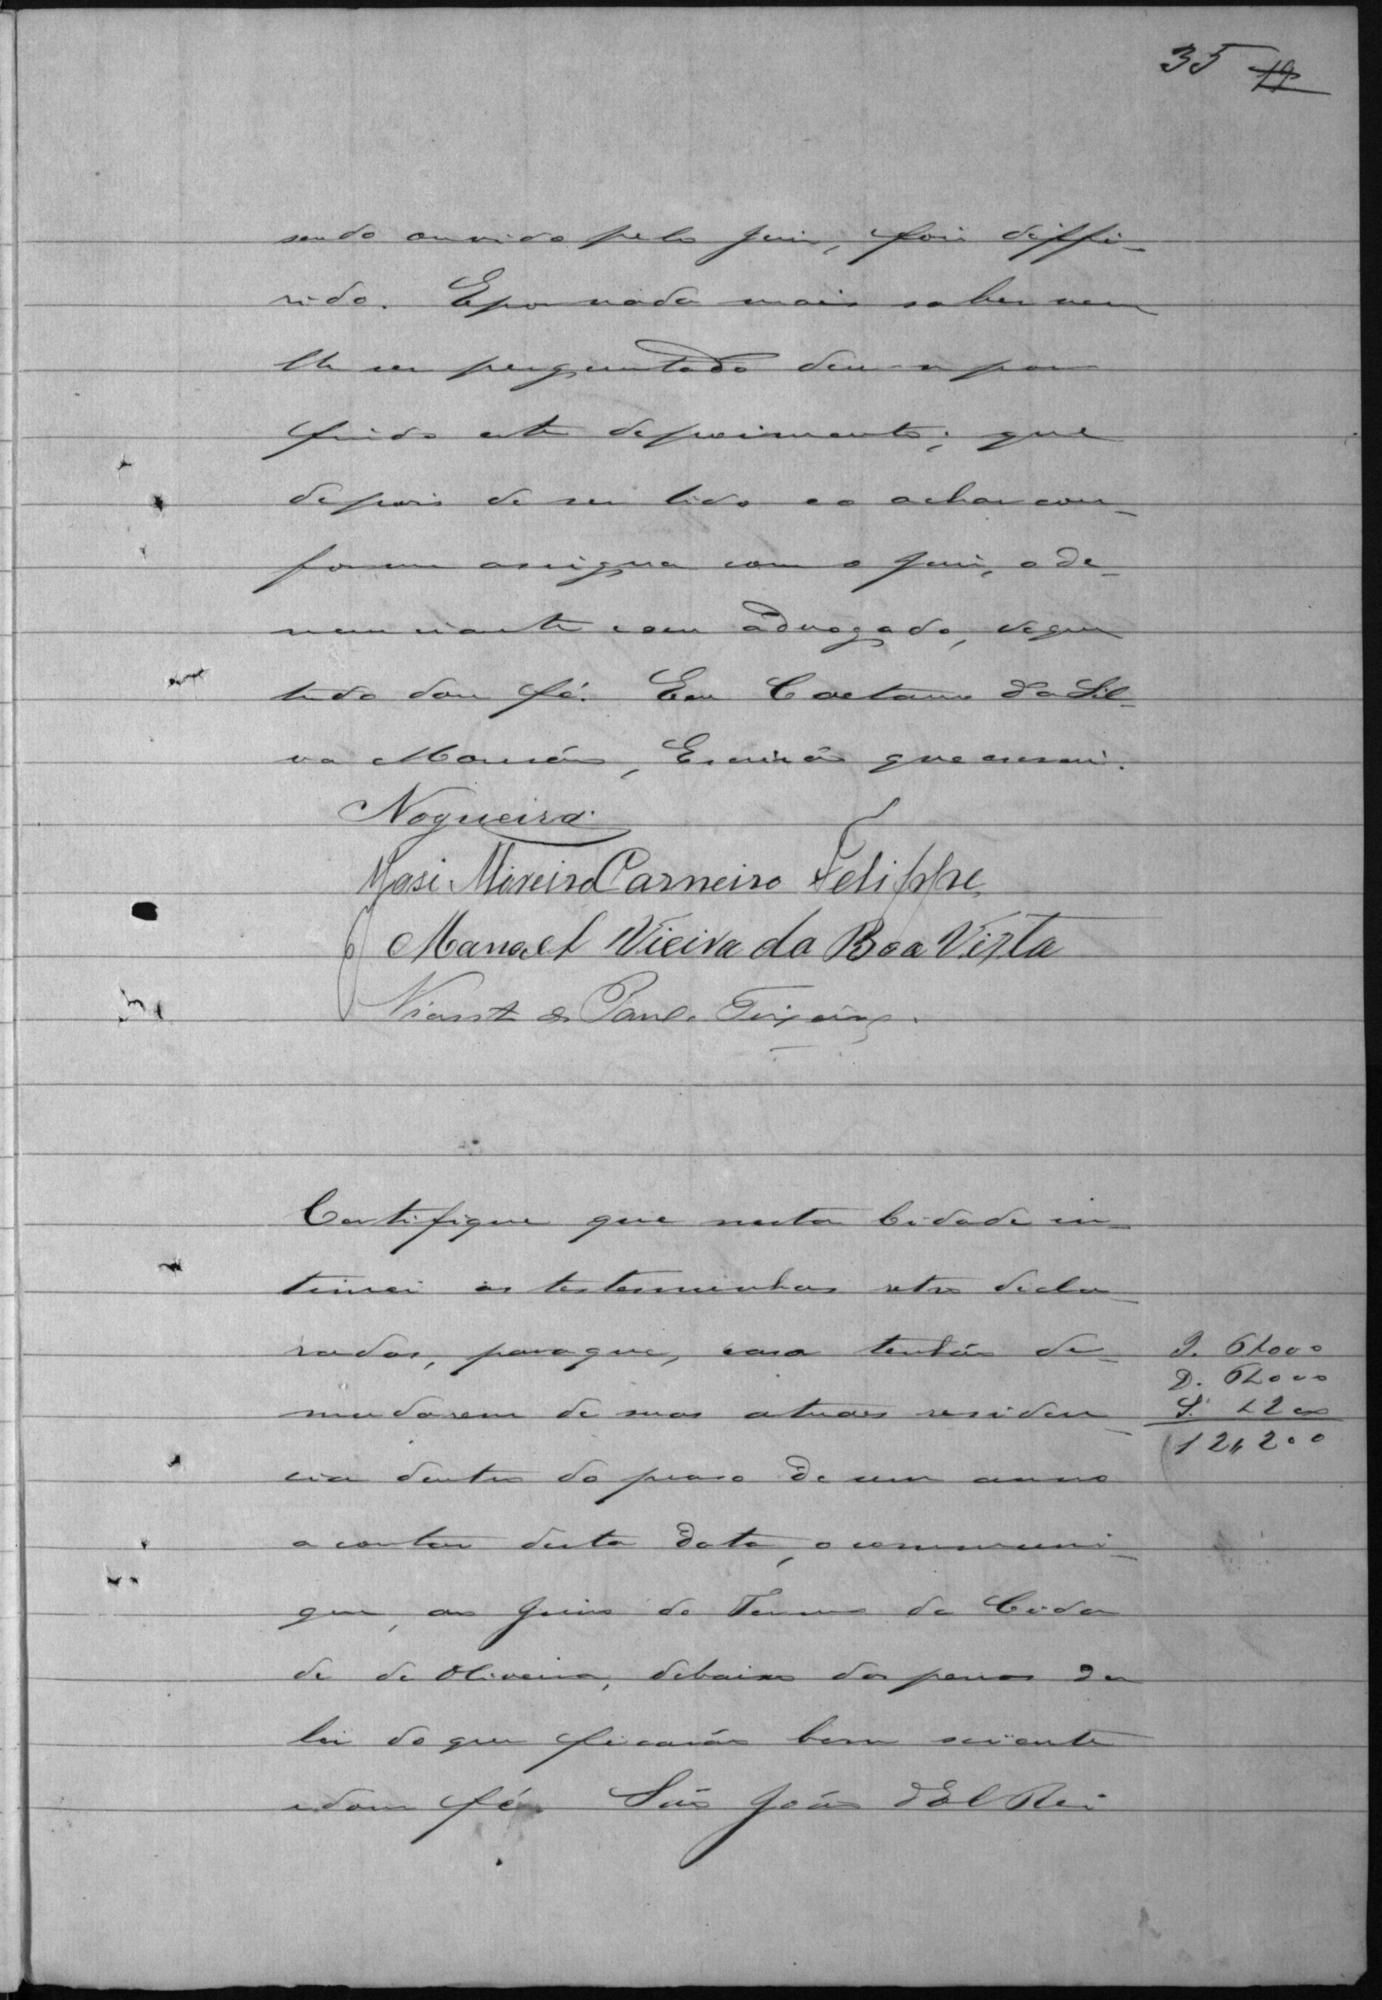 35 19
sendo ouvido pelo Juiz, foi deffe-
rido. E por nada mais saber nem
lhe ser perguntado deu-se por
findo este depoimento; que
depois de ser lido e o achar con-
forme assigna com o Juiz, o de-
nunciante e seu advogado, de que
tudo dou fé. Eu Caetano da Sil-
va Mourão, Escrivão que escrevi.
Nogueira
José Moreira Carneiro Felippe
Manoel Vieira da Boa Vista
Vicente de Paulo Teixeira.
Certifique que nesta Cidade in-
timei as testemunhas retro decla-
radas, para que, caso tenhão de
mudarem de suas atuaes residen-
cia dentro do praso de um anno
a contar desta data, o communi-
que, ao Juiz do Termo da Cida
de de Oliveira, debaixo das penas da
lei do que ficarão bem sciente
e dou fé. São João d'El Rei
J. 6$000
D. 6$000
S. $200
12$200